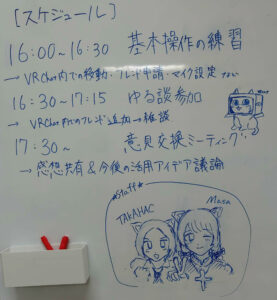 [スケジュール]
16:00~16:30 基本操作の練習
→ VRChat内での移動・フレンド申請・マイク設定 など
16:30~17:15 ゆる談参加
→ VRChat内でのフレンド追加→雑談
17:30~ 意見交換ミーティング
→ 感想共有&今後の活用アイデア議論
★Staff★
TAKAHAC
Masa